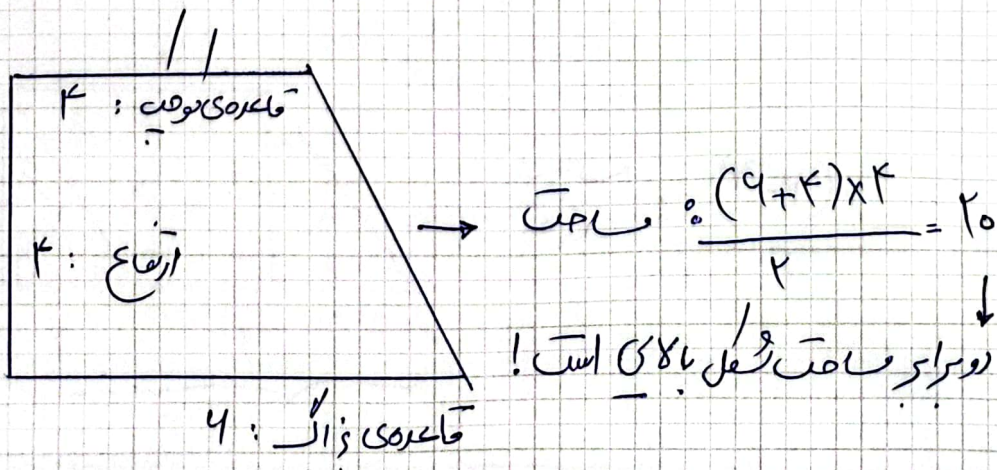 قاعده‌ی کوچک : ۴
ارتفاع : ۴
قاعده‌ی بزرگ : ۶
مساحت : (۶+۴)×۴ / ۲ = ۲۰
دو برابر مساحت شکل بالای است !